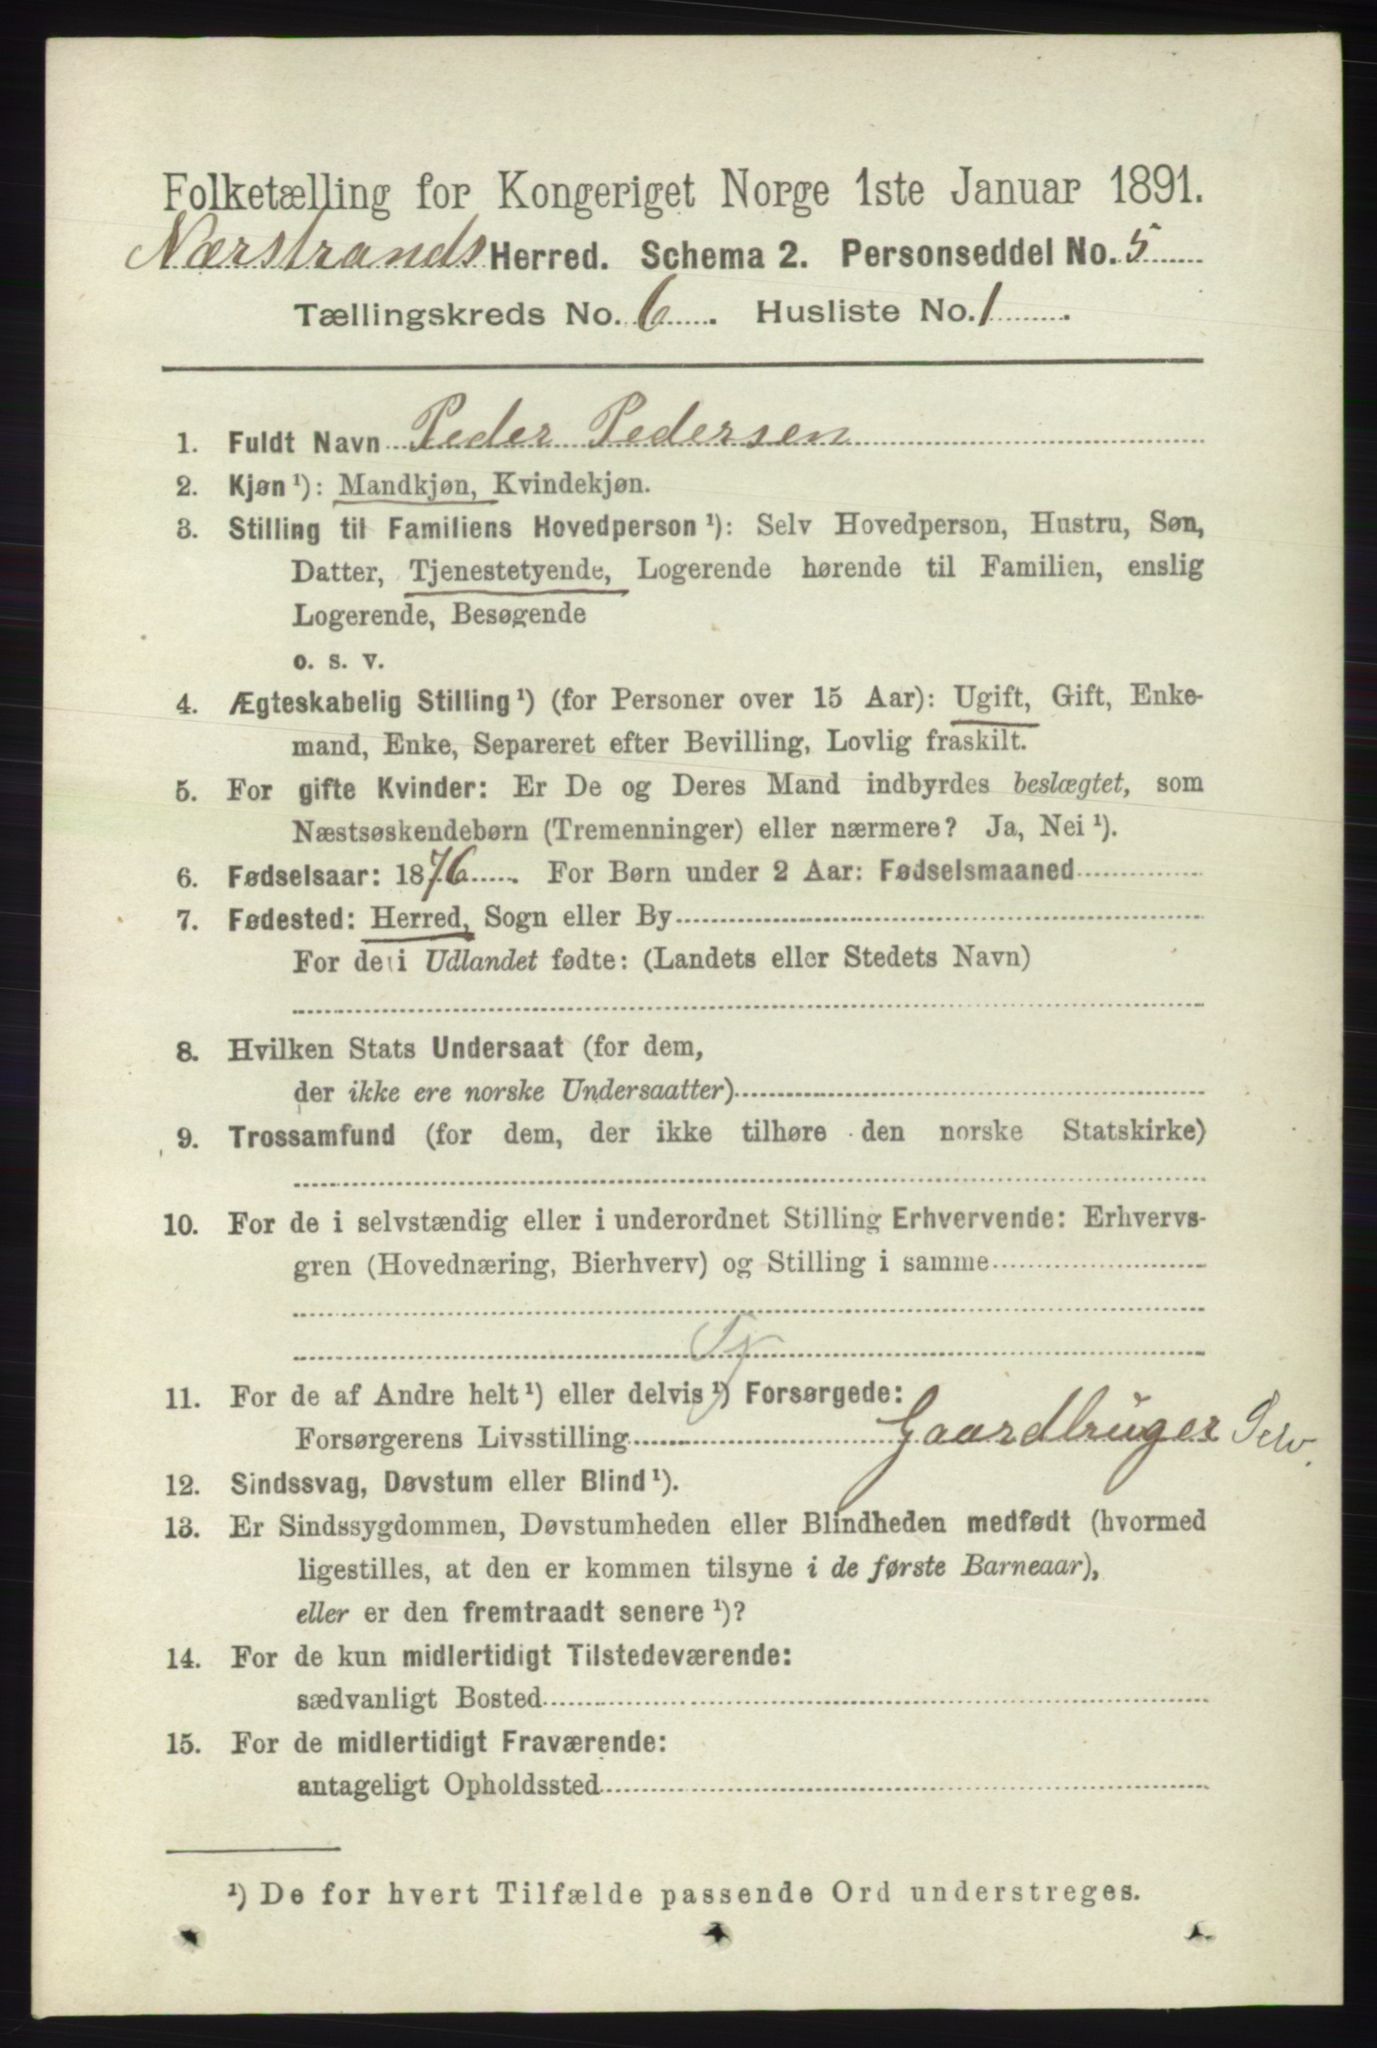 Folketælling for Kongeriget Norge 1ste Januar 1891.
Nærstrands Herred. Schema 2. Personseddel No. 5
Tællingskreds No. 6. Husliste No. 1.
1. Fuldt Navn Peder Pedersen
2. Kjøn ¹): Mandkjøn, Kvindekjøn.
3. Stilling til Familiens Hovedperson ¹): Selv Hovedperson, Hustru, Søn,
Datter, Tjenestetyende, Logerende hørende til Familien, enslig
Logerende, Besøgende
o. s. v.
4. Ægteskabelig Stilling ¹) (for Personer over 15 Aar): Ugift, Gift, Enke-
mand, Enke, Separeret efter Bevilling, Lovlig fraskilt.
5. For gifte Kvinder: Er De og Deres Mand indbyrdes beslægtet, som
Næstsøskendebørn (Tremenninger) eller nærmere? Ja, Nei ¹).
6. Fødselsaar: 1876. For Børn under 2 Aar: Fødselsmaaned
7. Fødested: Herred, Sogn eller By
For de i Udlandet fødte: (Landets eller Stedets Navn)
8. Hvilken Stats Undersaat (for dem,
der ikke ere norske Undersaatter)
9. Trossamfund (for dem, der ikke tilhøre den norske Statskirke)
10. For de i selvstændig eller i underordnet Stilling Erhvervende: Erhvervs-
gren (Hovednæring, Bierhverv) og Stilling i samme
11. For de af Andre helt ¹) eller delvis ¹) Forsørgede:
Forsørgerens Livsstilling Gaardbruger Selv.
12. Sindssvag, Døvstum eller Blind ¹).
13. Er Sindssygdommen, Døvstumheden eller Blindheden medfødt (hvormed
ligestilles, at den er kommen tilsyne i de første Barneaar),
eller er den fremtraadt senere ¹)?
14. For de kun midlertidigt Tilstedeværende:
sædvanligt Bosted
15. For de midlertidigt Fraværende:
antageligt Opholdssted
¹) De for hvert Tilfælde passende Ord understreges.